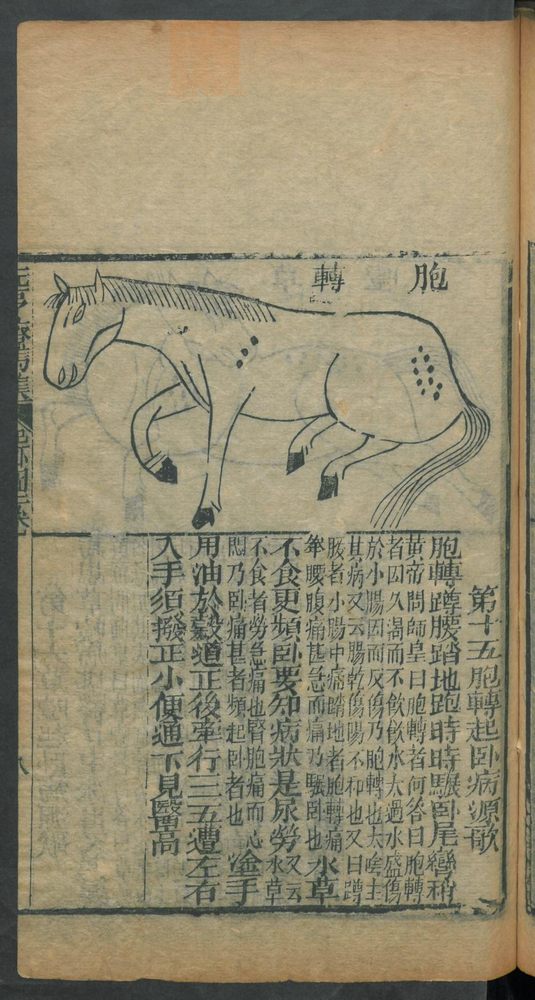 胞轉
第十五胞轉起臥病源歌
胞轉蹲腰踏地跑時時驟臥尾彎稍
黃帝問師皇曰胞轉者何答曰胞轉
者因久渴而不飲飲水太過水盛傷
於小腸因而反傷乃胞轉也大
其病又云腸乾傷陽不和也又曰蹲
腰者小腸中痛踏地者胞轉痛
腰腹痛甚急而痛乃驟臥也水草
不食更頻臥要知病狀是尿勞又云水草
不食者勞急痛也腎胞痛而心
悶乃臥痛甚者頻起臥者也塗手
用油於穀道正後牽行三五遭左右
入手須撥正小便通下見醫高
元亨療馬集
八